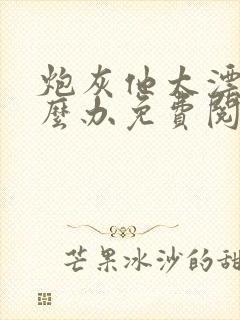 炮灰他太漂
麼办免費閱
芒果冰沙的甜